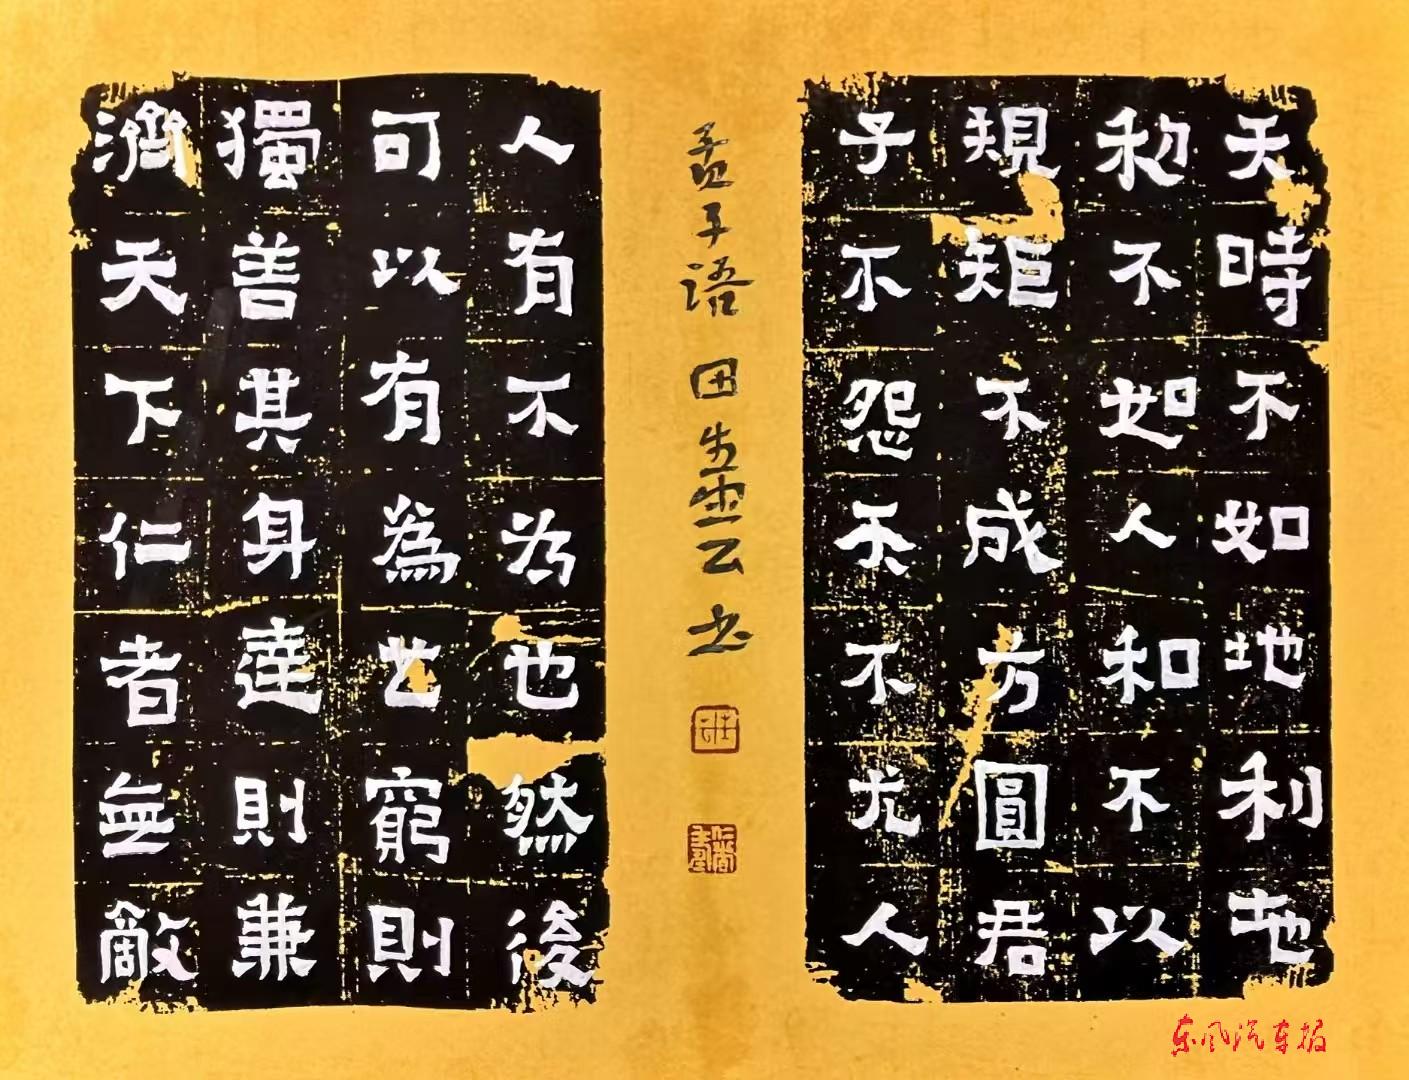 天時不如地利地
利不如人和不以
規矩不成方圓君
子不怨天不尤人
孟子语 田生云书
人有不为也然後
可以有為也窮則
獨善其身達則兼
濟天下仁者無敵
东风汽车报